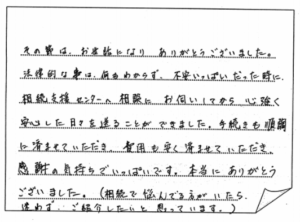 その節は、お世話になり ありがとうございました。
法律的な事は、何もわからず、不安いっぱいだった時に、
相続支援センターへ相談に お伺いしてから 心強く
安心した日々を送ることができました。手続きも順調
に済ませていただき、費用も安く済ませていただき、
感謝の気持ちでいっぱいです。本当に ありがとう
ございました。(相続で悩んでる方がいたら
迷わず、ご紹介したいと思っています。)